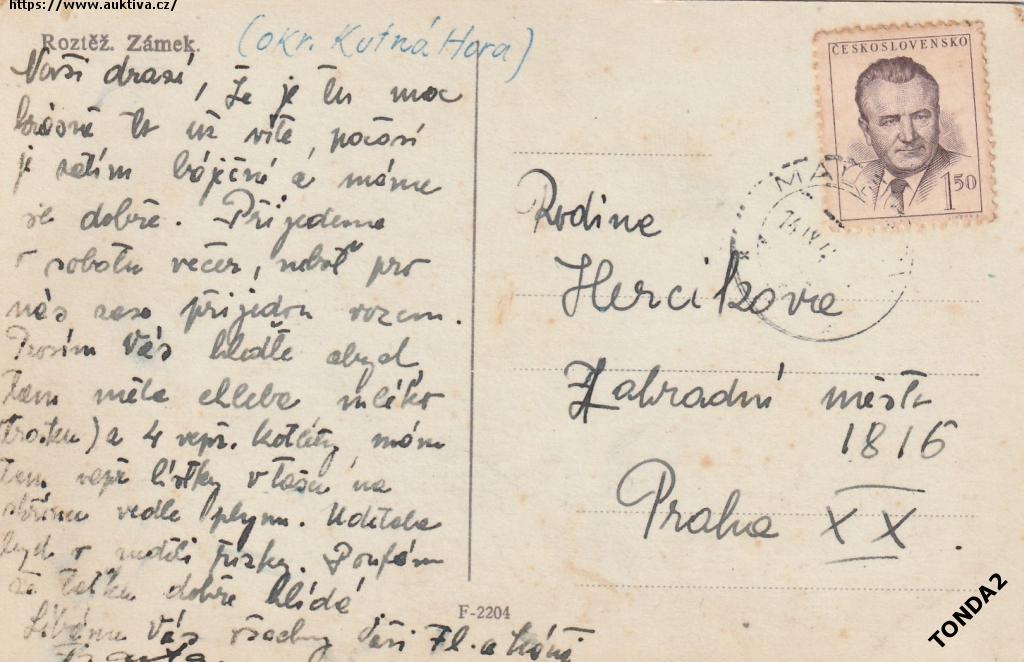 https://www.auktiva.cz/
Roztěž. Zámek. (okr. Kutná Hora)
Naši drazí, že je tu moc
krásně to už víte, počasí
je zatím báječné a máme
se dobře. Přijedeme
v sobotu večer, neboť pro
nás zase přijedou vozem.
Prosím Vás hleďte abych
tam měla chleba mléko
(trochu) a 4 vepř. kotlety, mám
tam vepř lístky v tašce na
skřínu vedle plynu. Udělala
bych v neděli řízky. Doufám
že
dobře hlídá
Líbáme Vás všechny
Fl. a
ČESKOSLOVENSKO
1.50
MAL
14.IV.
Rodina
Hercikova
Zahradní město
1816
Praha XX.
F-2204
TONDA2